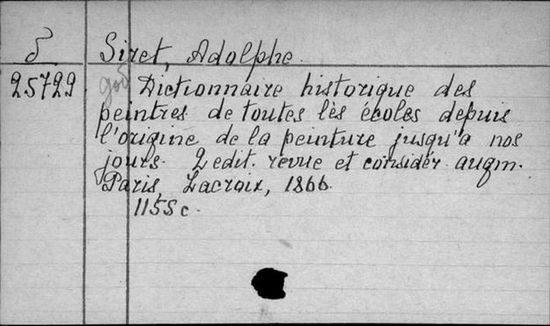 δ Siret, Adolphe.
25729 Dictionnaire historique des
peintres de toutes lès écoles depuis
l'origine de la peinture jusqu'a nos
jours. 2 edit. revue et considér augm.
Paris, Lacroix, 1866.
1155 c.